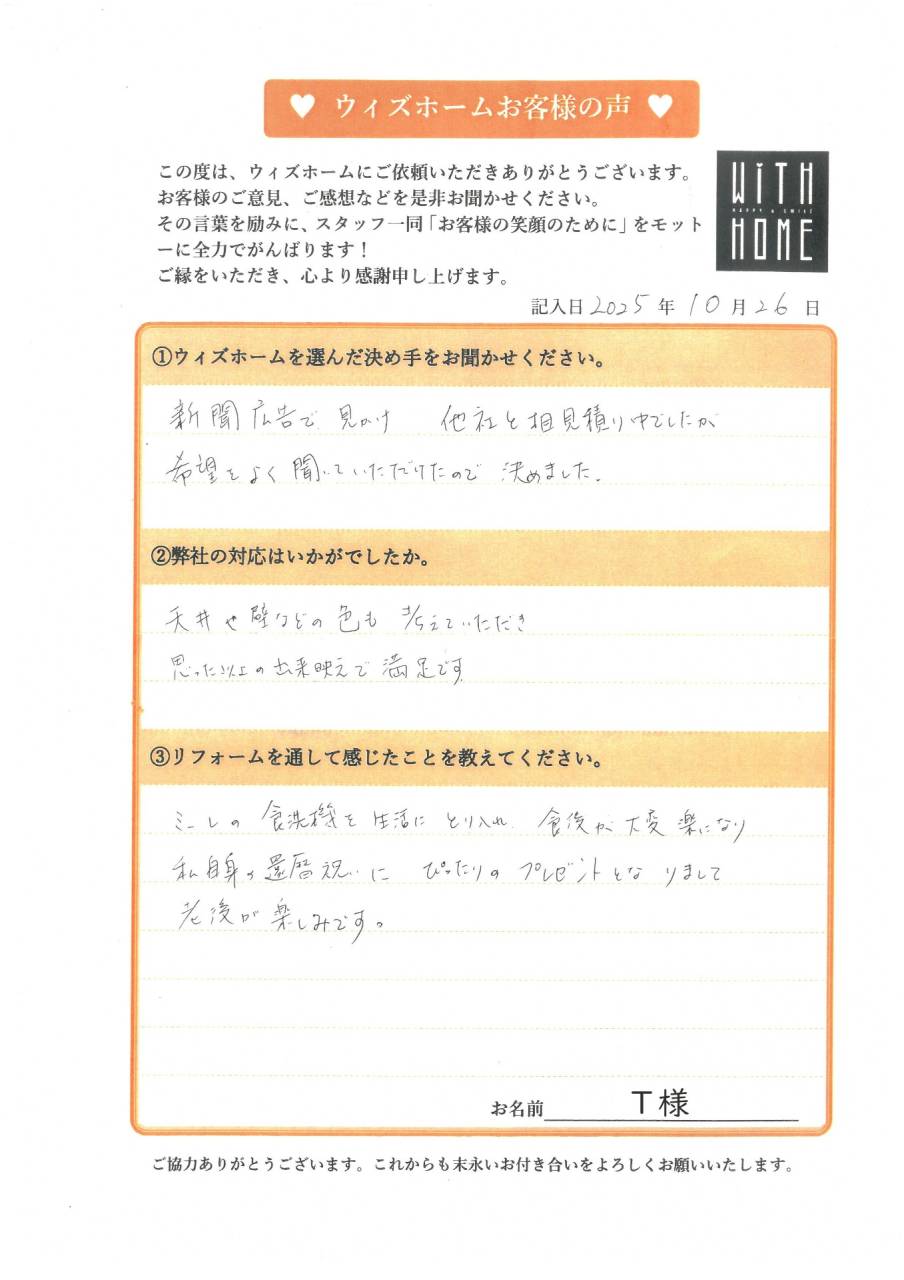 ♥ ウィズホームお客様の声 ♥
この度は、ウィズホームにご依頼いただきありがとうございます。
お客様のご意見、ご感想などを是非お聞かせください。
その言葉を励みに、スタッフ一同「お客様の笑顔のために」をモット
ーに全力でがんばります！
ご縁をいただき、心より感謝申し上げます。
WiTH
HAPPY & SMILE
HOME
記入日 2025 年 10 月 26 日
①ウィズホームを選んだ決め手をお聞かせください。
新聞広告で 見かけ 他社と相見積り中でしたが
希望をよく聞いていただけたので 決めました.
②弊社の対応はいかがでしたか。
天井や壁などの色も 考えていただき
思った以上の出来映えで満足です
③リフォームを通して感じたことを教えてください。
ミーレの食洗機を生活にとり入れ、食後が大変楽になり
私自身の還暦祝いに ぴったりのプレゼントとなりまして
老後が楽しみです。
お名前 T様
ご協力ありがとうございます。これからも末永いお付き合いをよろしくお願いいたします。